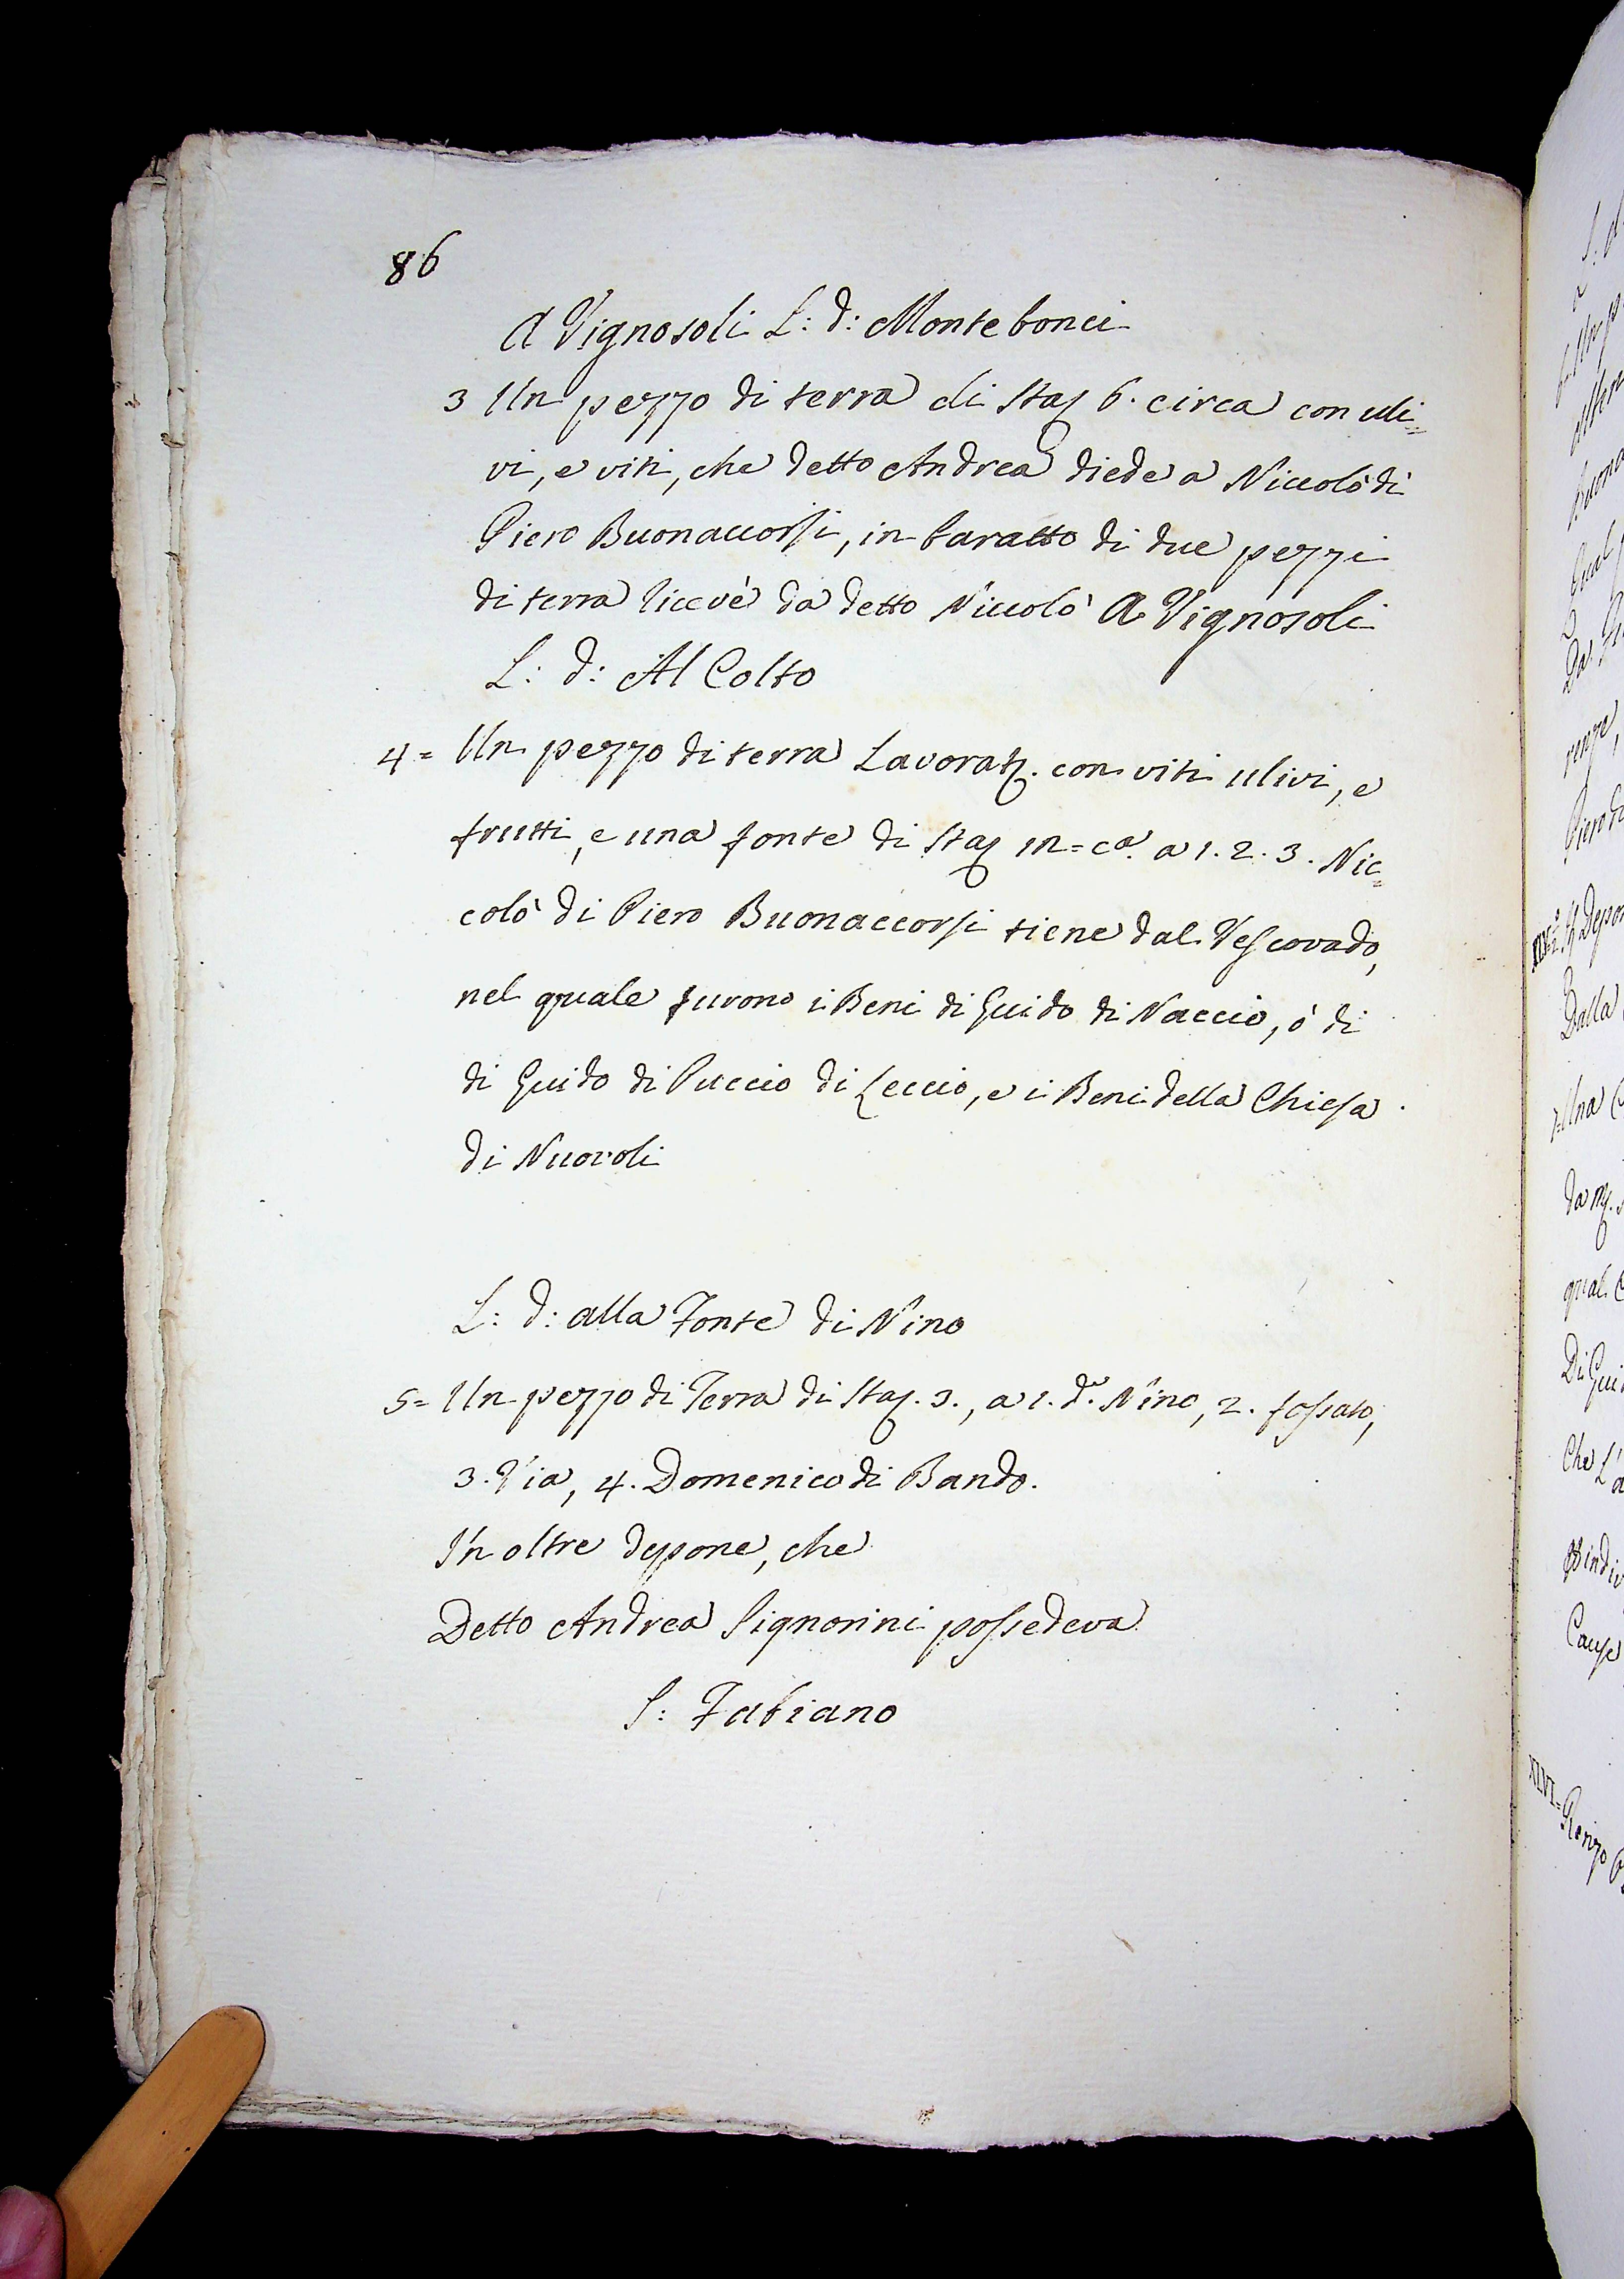 86
A Vignosoli L: d: Monte bonci
3 Un pezzo di terra di Staj 6. circa con uli=
vi, e viti, che detto Andrea diede a Niccolò di
Piero Buonaccorsi, in baratto di due pezzi
di terra licevè da detto Niccolò A Vignosoli
L: d: Al Colto
4= Un pezzo di terra Lavorat. con viti ulivi, e
frutti, e una fonte di Staj 12=ca. a 1. 2. 3. Nic=
colò di Piero Buonaccorsi tiene dal Vescovado,
nel quale furono i Beni di Guido di Naccio, ò di
di Guido di Puccio di Leccio, e i Beni della Chiesa
di Nuovoli
L: d: alla Fonte di Nino
5= Un pezzo di Terra di Staj. 3., a 1. do. Nino, 2. fossato,
3. Via, 4. Domenico di Bando.
In oltre depone, che
Detto Andrea Signorini possedeva
S: Fabiano